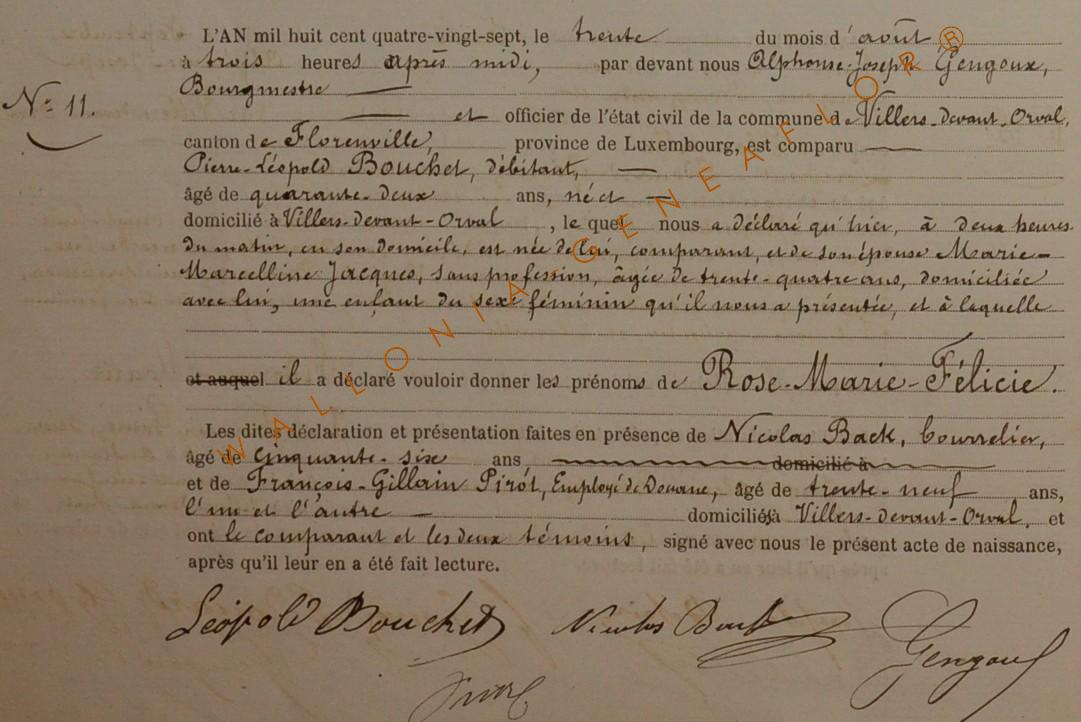 L'AN mil huit cent quatre-vingt-sept, le trente du mois d'août
à trois heures après midi, par devant nous Alphonse-Joseph Gengoux,
Bourgmestre
N° 11.
et officier de l'état civil de la commune de Villers-devant-Orval,
canton de Florenville, province de Luxembourg, est comparu
Pierre-Léopold Bouchet, débitant,
âgé de quarante-deux ans, né et
domicilié à Villers-devant-Orval, le quel nous a déclaré qu'hier, à deux heures
du matin, en son domicile, est née de lui, comparant, et de son épouse Marie-
Marcelline Jacques, sans profession, âgée de trente-quatre ans, domiciliée
avec lui, une enfant du sexe féminin qu'il nous a présentée, et à laquelle
et auquel il a déclaré vouloir donner les prénoms de Rose-Marie-Félicie.
Les dites déclaration et présentation faites en présence de Nicolas Back, bourrelier,
âgé de cinquante-six ans domicilié à
et de François-Gillain Pirot, Employé de Douane, âgé de trente-neuf ans,
l'un et l'autre domiciliés à Villers-devant-Orval, et
ont le comparant et les deux témoins, signé avec nous le présent acte de naissance,
après qu'il leur en a été fait lecture.
Léopold Bouchet Nicolas Back Gengoux
Pirot
WALLONIA GENEAFLOR®